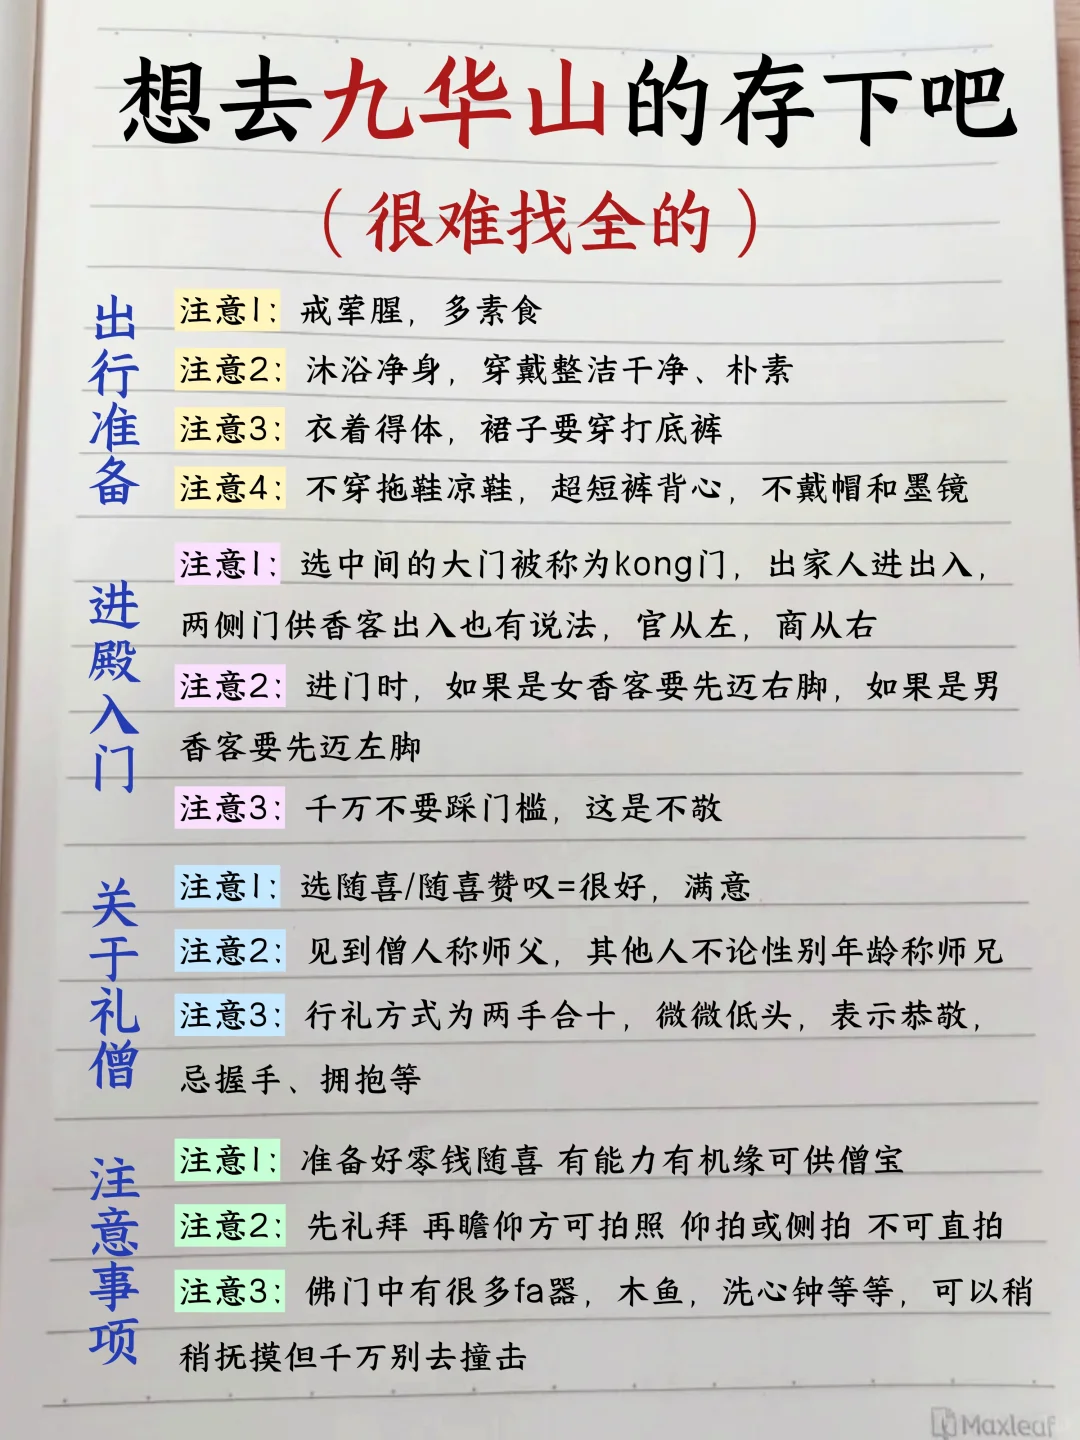 想去九华山的存下吧
(很难找全的)
出行准备
注意1：戒荤腥，多素食
注意2：沐浴净身，穿戴整洁干净、朴素
注意3：衣着得体，裙子要穿打底裤
注意4：不穿拖鞋凉鞋，超短裤背心，不戴帽和墨镜
进殿入门
注意1：选中间的大门被称为kong门，出家人进出入，
两侧门供香客出入也有说法，官从左，商从右
注意2：进门时，如果是女香客要先迈右脚，如果是男
香客要先迈左脚
注意3：千万不要踩门槛，这是不敬
关于礼僧
注意1：选随喜/随喜赞叹=很好，满意
注意2：见到僧人称师父，其他人不论性别年龄称师兄
注意3：行礼方式为两手合十，微微低头，表示恭敬，
忌握手、拥抱等
注意事项
注意1：准备好零钱随喜 有能力有机缘可供僧宝
注意2：先礼拜 再瞻仰方可拍照 仰拍或侧拍 不可直拍
注意3：佛门中有很多fa器，木鱼，洗心钟等等，可以稍
稍抚摸但千万别去撞击
Maxleaf